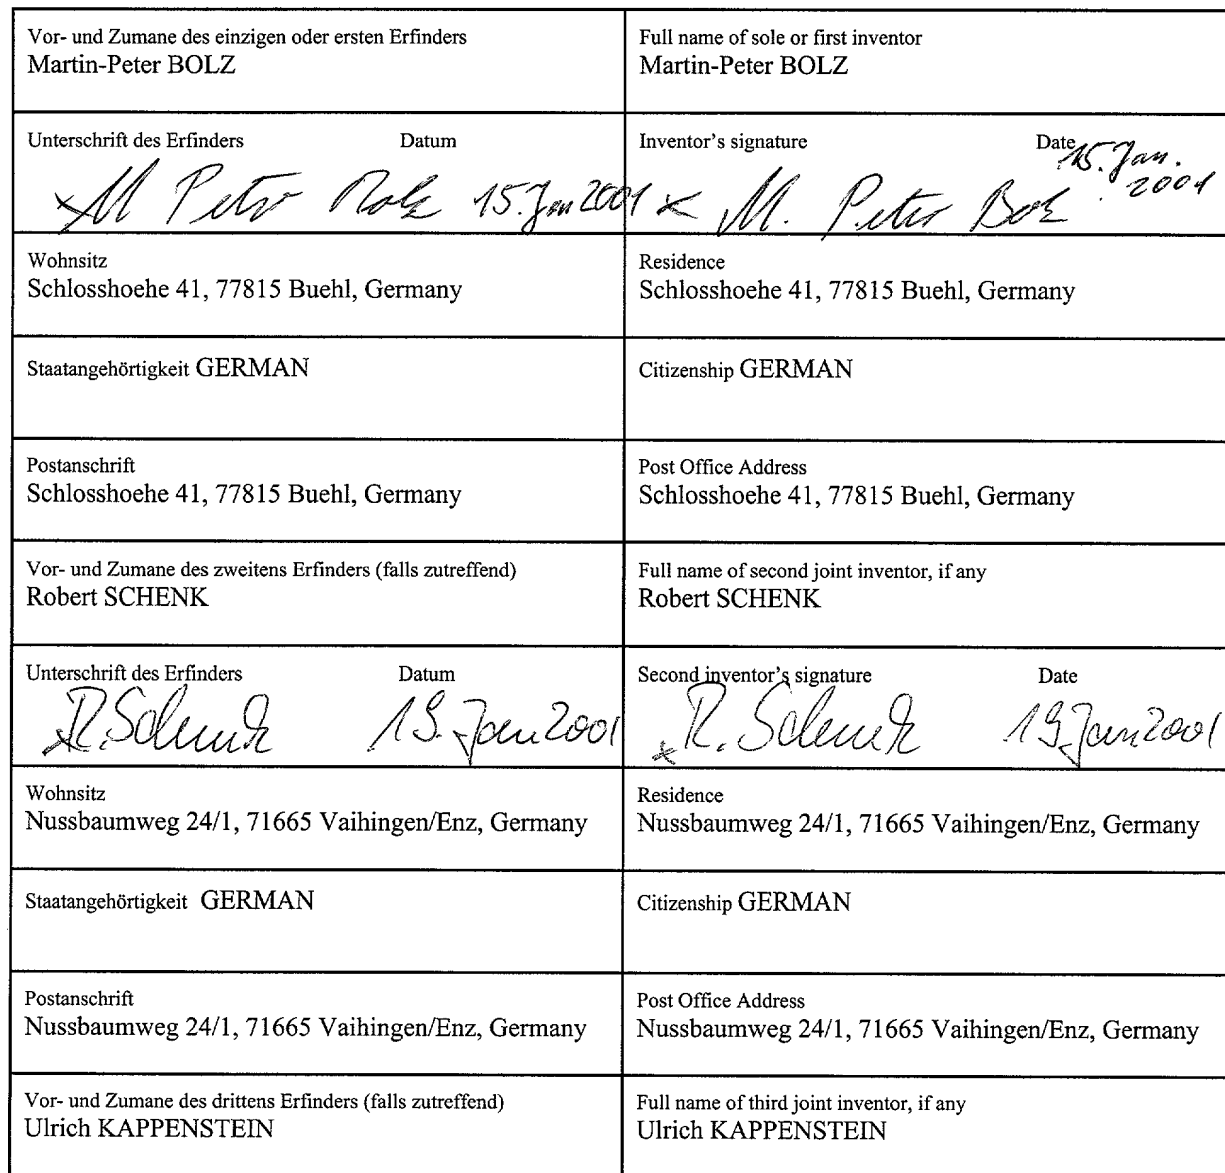 Vor- und Zumane des einzigen oder ersten Erfinders
Martin-Peter BOLZ
Full name of sole or first inventor
Martin-Peter BOLZ
Unterschrift des Erfinders Datum
x M Peter Bolz 15. Jan 2001
Inventor's signature Date
x M. Peter Bolz 15. Jan. 2001
Wohnsitz
Schlosshoehe 41, 77815 Buehl, Germany
Residence
Schlosshoehe 41, 77815 Buehl, Germany
Staatangehörtigkeit GERMAN
Citizenship GERMAN
Postanschrift
Schlosshoehe 41, 77815 Buehl, Germany
Post Office Address
Schlosshoehe 41, 77815 Buehl, Germany
Vor- und Zumane des zweitens Erfinders (falls zutreffend)
Robert SCHENK
Full name of second joint inventor, if any
Robert SCHENK
Unterschrift des Erfinders Datum
x R. Schenk 19. Jan 2001
Second inventor's signature Date
x R. Schenk 19. Jan 2001
Wohnsitz
Nussbaumweg 24/1, 71665 Vaihingen/Enz, Germany
Residence
Nussbaumweg 24/1, 71665 Vaihingen/Enz, Germany
Staatangehörtigkeit GERMAN
Citizenship GERMAN
Postanschrift
Nussbaumweg 24/1, 71665 Vaihingen/Enz, Germany
Post Office Address
Nussbaumweg 24/1, 71665 Vaihingen/Enz, Germany
Vor- und Zumane des drittens Erfinders (falls zutreffend)
Ulrich KAPPENSTEIN
Full name of third joint inventor, if any
Ulrich KAPPENSTEIN